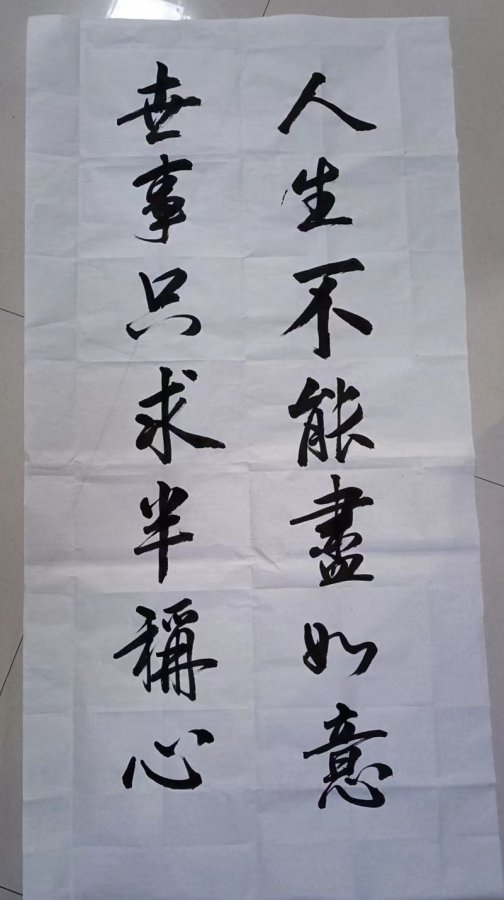 人生不能盡如意
世事只求半稱心